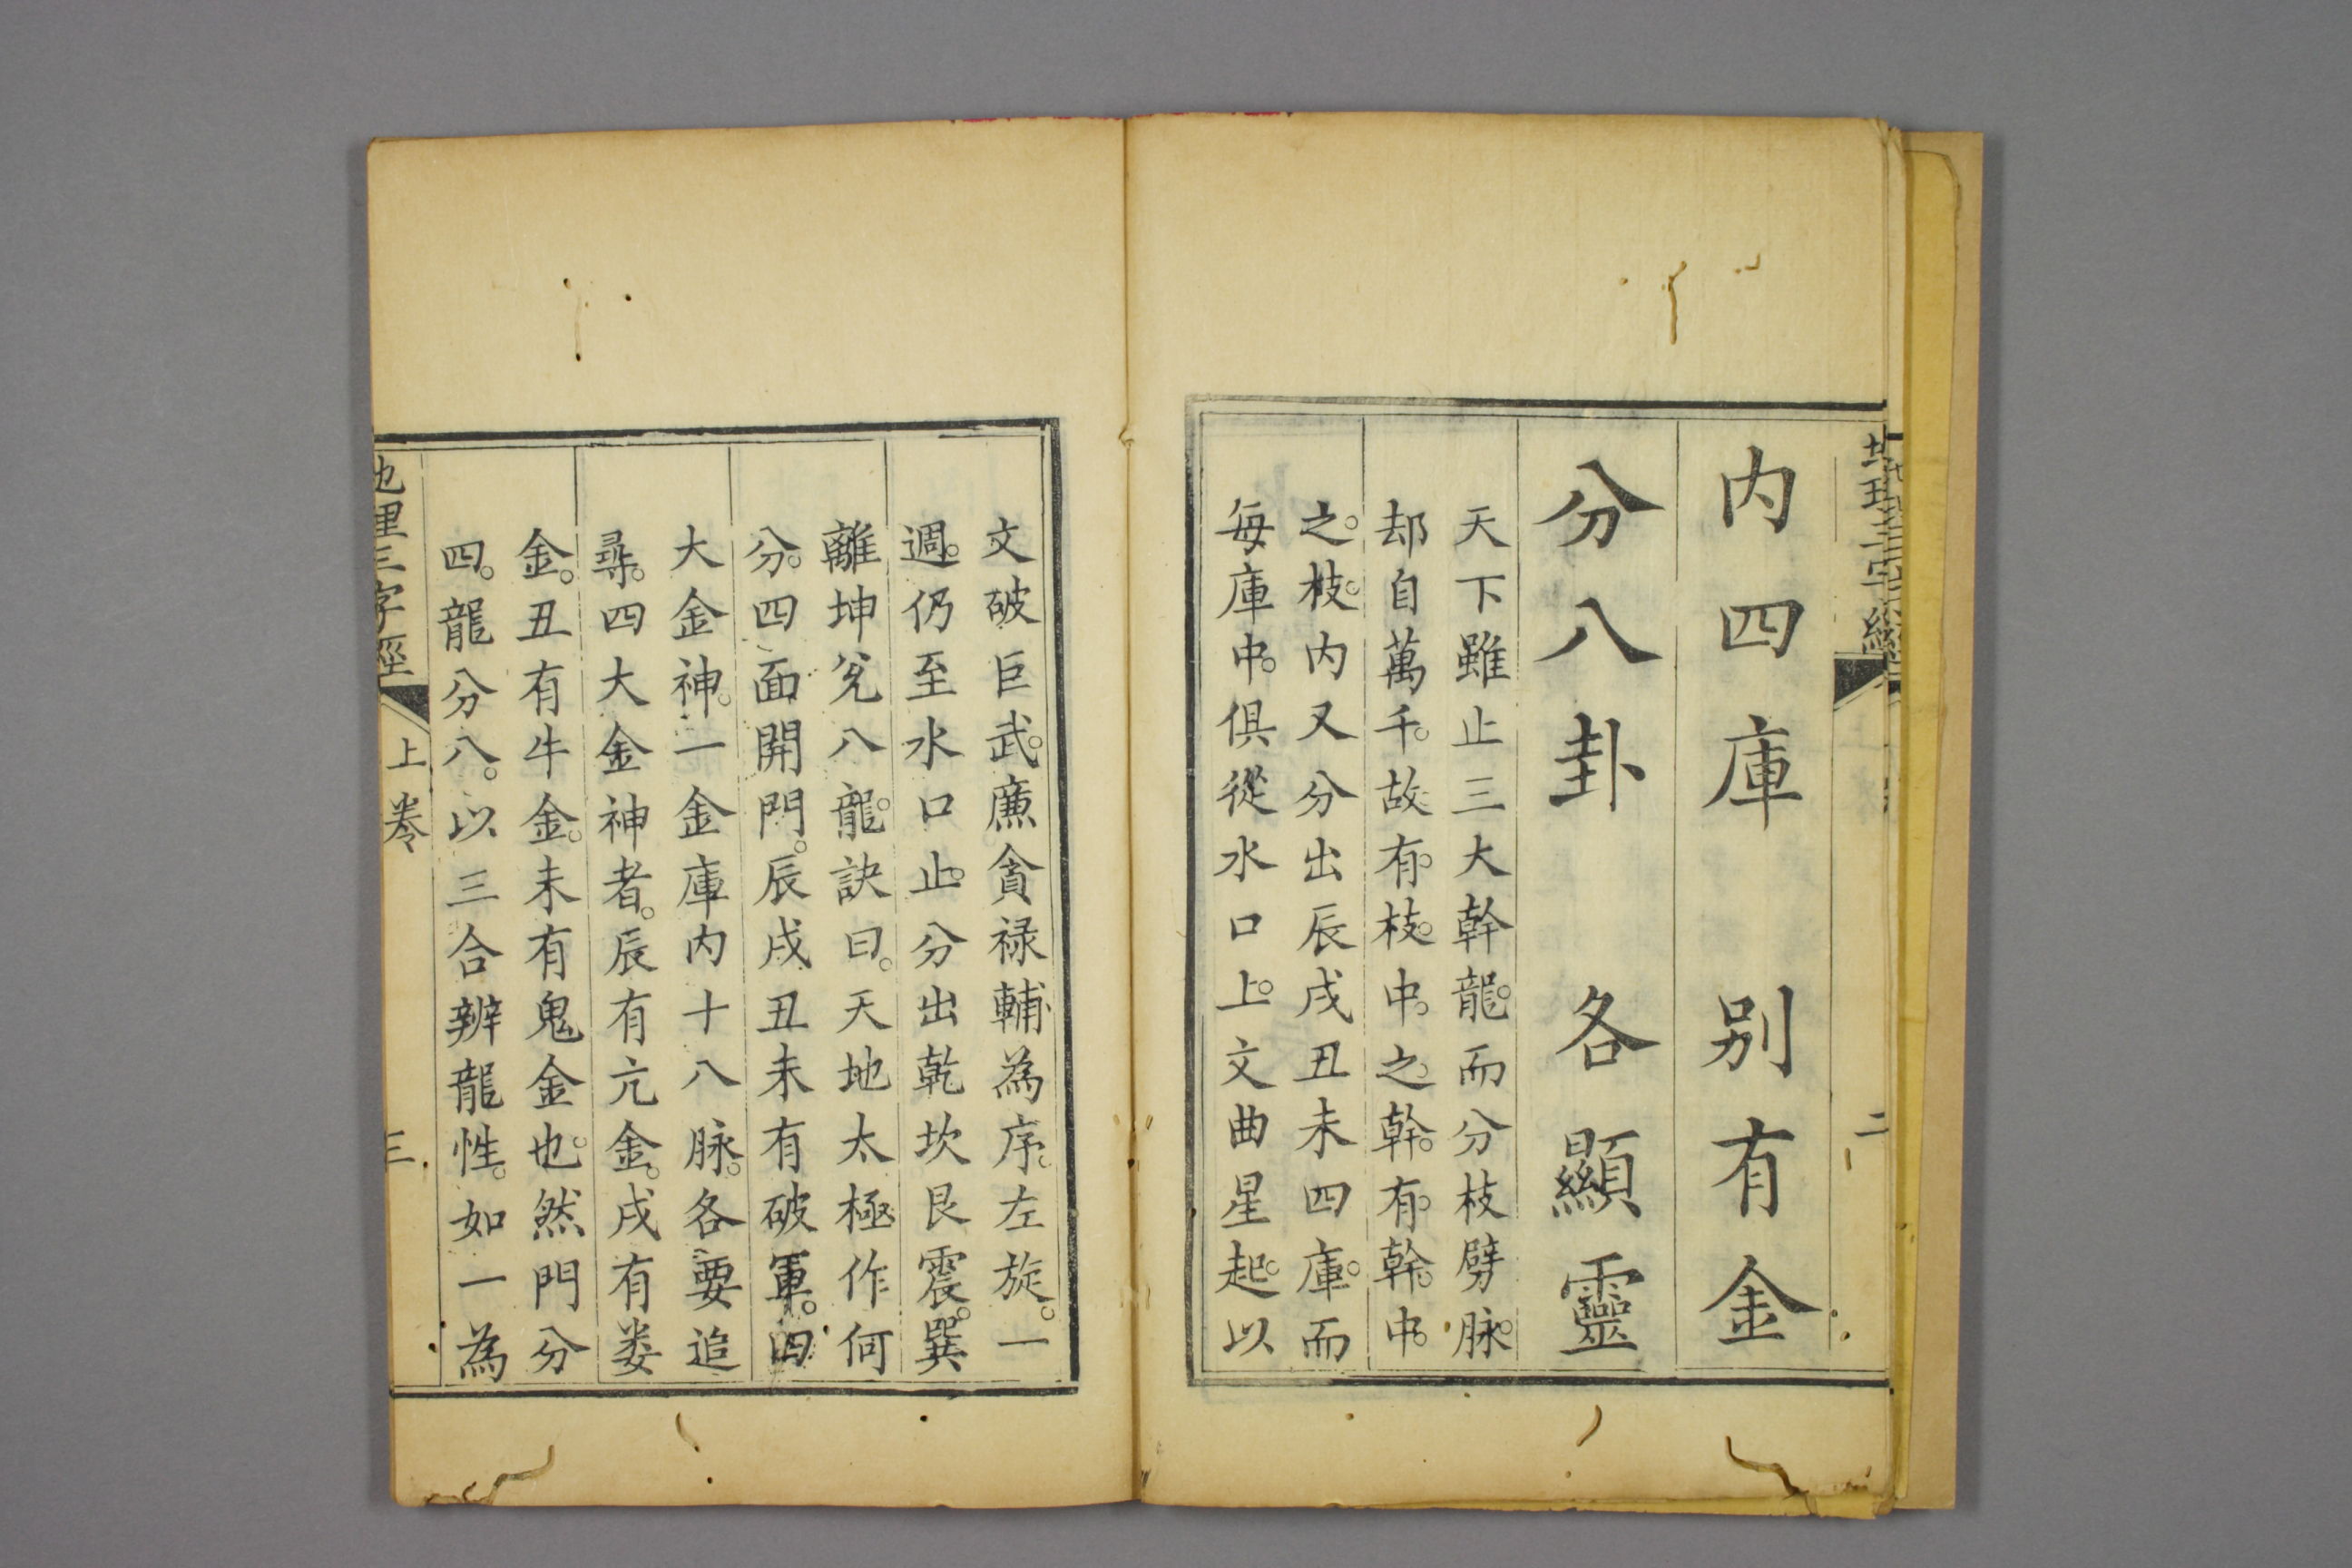 内四庫　別有金
分八卦　各顯靈
天下雖止三大幹龍。而分枝劈脉。
却自萬千。故有。枝。中。之。幹。有。幹。中。
之。枝。内又分出辰戌丑未四庫。而
每庫中。俱從水口上。文曲星起。以
二
文破巨武。廉貪禄輔為序。左旋。一
週。仍至水口止。分出乾坎艮震。巽
離坤兌八龍。訣曰。天地太極作何
分。四面開門。辰戌丑未有破軍。四
大金神。一金庫内十八脉。各要追
尋。四大金神者。辰有亢金。戌有婁
金。丑有牛金。未有鬼金也。然門分
四。龍分八。以三合辨龍性。如一為
地理三字經
上卷
三